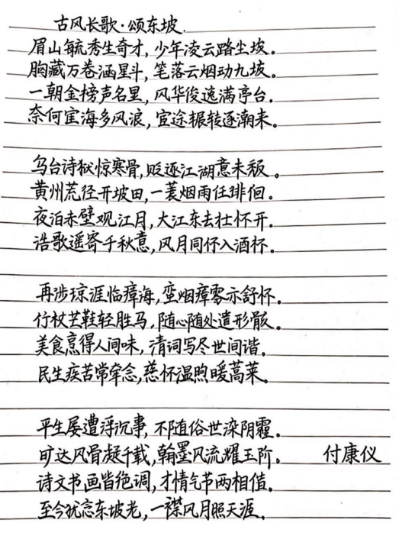 古风长歌·颂东坡
眉山毓秀生奇才,少年凌云路尘埃.
胸藏万卷涵星斗,笔落云烟动九垓.
一朝金榜声名里,风华俊逸满亭台.
奈何宦海多风浪,宦途辗转逐潮来.
乌台诗狱惊寒骨,贬逐江湖意未颓.
黄州荒径开坡田,一蓑烟雨任徘徊.
夜泊赤壁观江月,大江东去壮怀开.
浩歌遥寄千秋意,风月同怀入酒杯.
再涉琼涯临瘴海,蛮烟瘴雾亦舒怀.
竹杖芒鞋轻胜马,随心随处遣形骸.
美食烹得人间味,清词写尽世间谐.
民生疾苦常牵念,慈怀温煦暖蒿莱.
平生屡遭浮沉事,不随俗世染阴霾.
旷达风骨凝千载,翰墨风流耀玉阶. 付康仪
诗文书画皆绝调,才情气节两相偕.
至今犹忆东坡老,一襟风月照天涯.